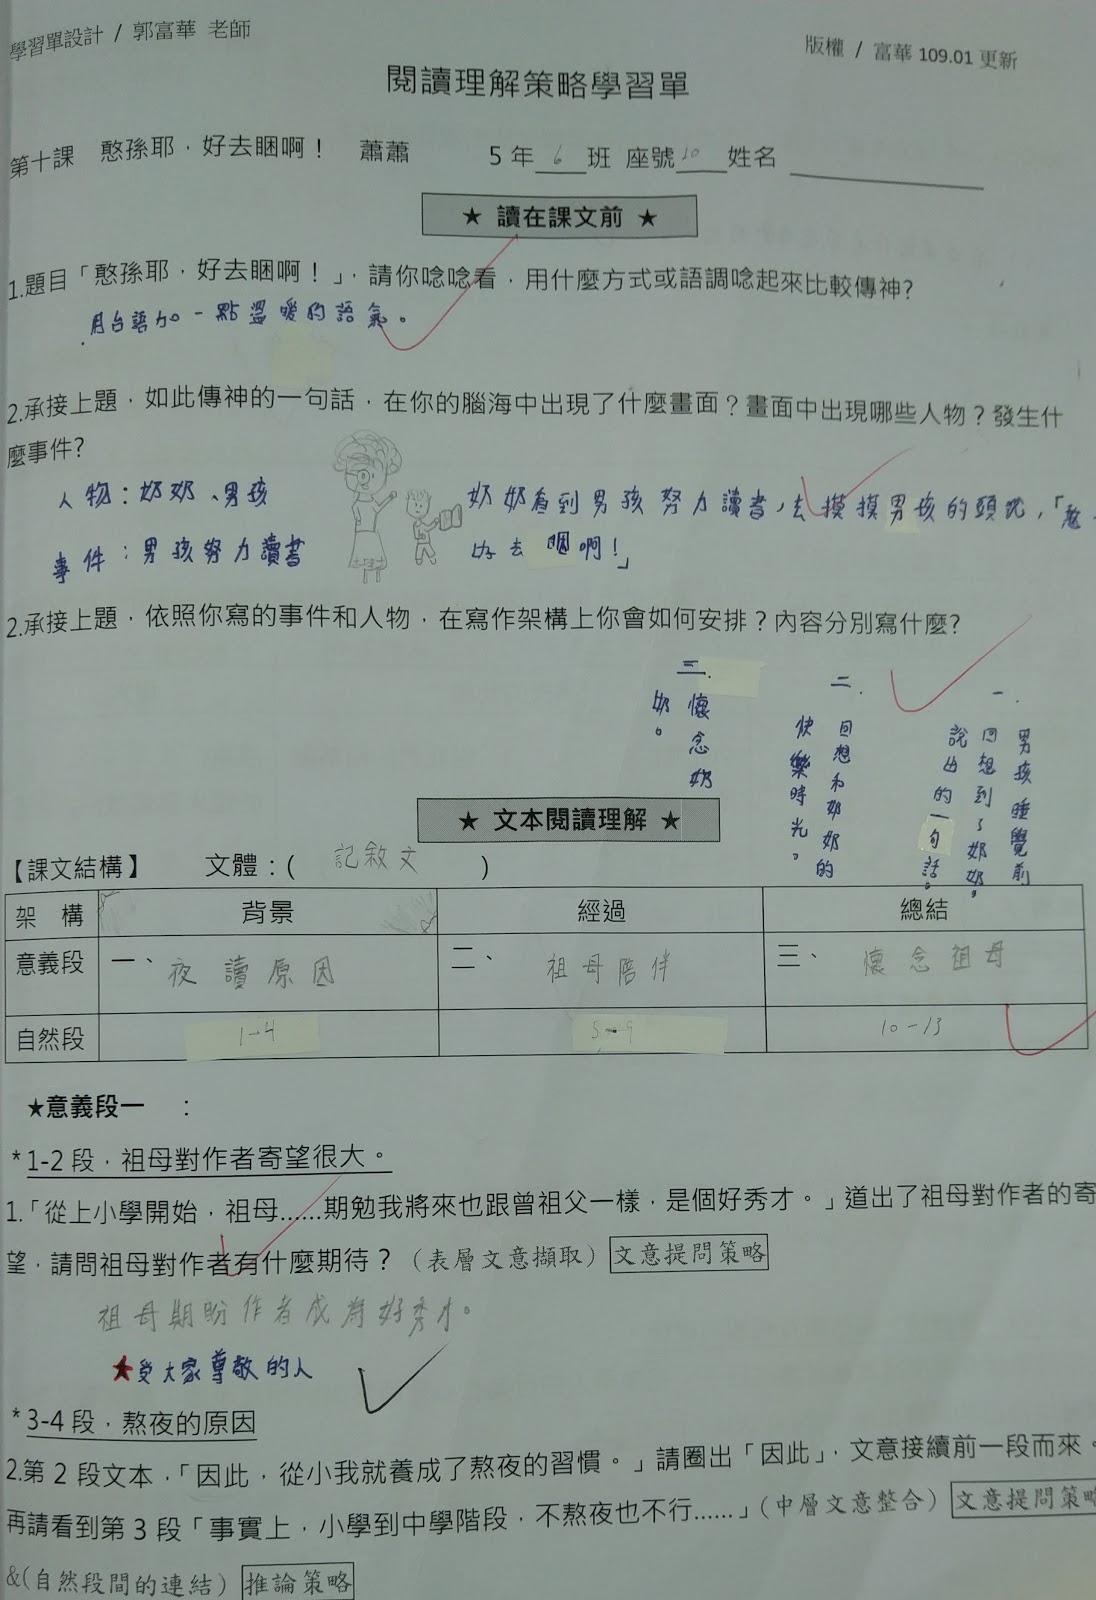 學習單設計 / 郭富華 老師
版權 / 富華 109.01 更新
閱讀理解策略學習單
第十課 憨孫耶，好去睏啊！ 蕭蕭 5 年 6 班 座號 10 姓名
★ 讀在課文前 ★
1.題目「憨孫耶，好去睏啊！」，請你唸唸看，用什麼方式或語調唸起來比較傳神?
用台語加一點溫暖的語氣。
2.承接上題，如此傳神的一句話，在你的腦海中出現了什麼畫面？畫面中出現哪些人物？發生什
麼事件?
人物：奶奶、男孩
事件：男孩努力讀書
奶奶看到男孩努力讀書，去摸摸男孩的頭說，「憨
好去睏啊！」
2.承接上題，依照你寫的事件和人物，在寫作架構上你會如何安排？內容分別寫什麼?
一.男孩睡覺前
回想到了奶奶
說出的一句話。
二.回想和奶奶的
快樂時光。
三.懷念奶
奶。
★ 文本閱讀理解 ★
【課文結構】 文體：( 記敘文 )
架 構 背景 經過 總結
意義段 一、夜讀原因 二、祖母陪伴 三、懷念祖母
自然段 1-4 5-9 10-13
★意義段一 ：
*1-2 段，祖母對作者寄望很大。
1.「從上小學開始，祖母……期勉我將來也跟曾祖父一樣，是個好秀才。」道出了祖母對作者的寄
望，請問祖母對作者有什麼期待？（表層文意擷取）文意提問策略
祖母期盼作者成為好秀才。
★受大家尊敬的人
*3-4 段，熬夜的原因
2.第 2 段文本，「因此，從小我就養成了熬夜的習慣。」請圈出「因此」，文意接續前一段而來。
再請看到第 3 段「事實上，小學到中學階段，不熬夜也不行……」（中層文意整合）文意提問策略
&(自然段間的連結）推論策略